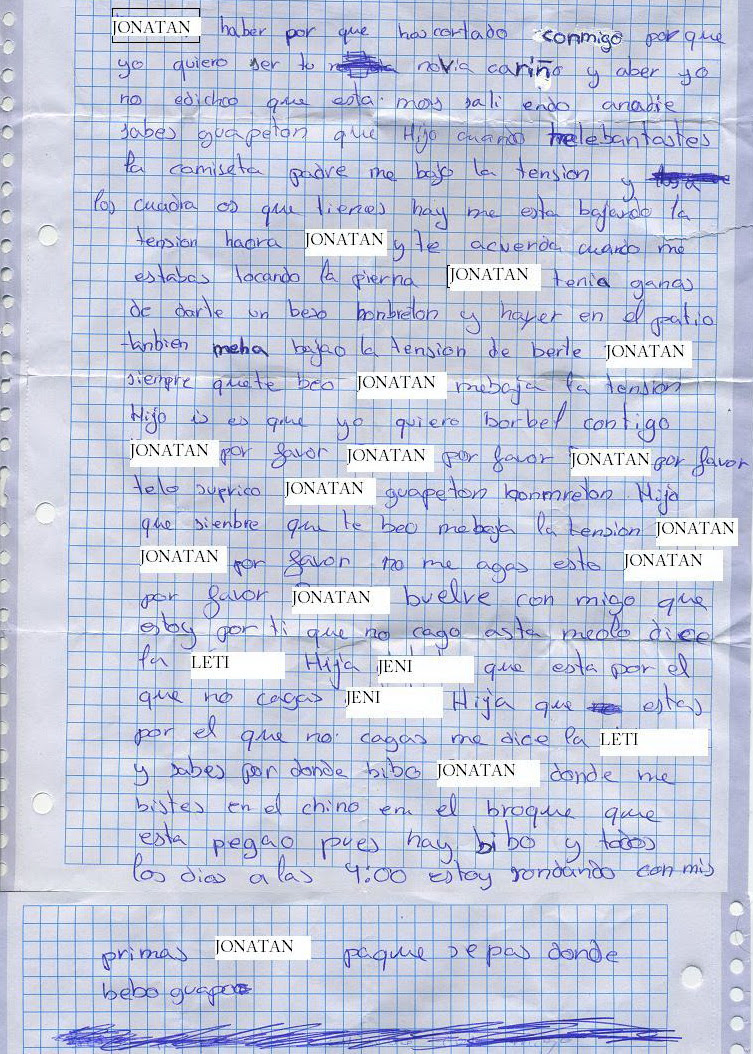 JONATAN haber por que has cortado conmigo por que
yo quiero ser tu novia cariño y aber yo
no edichoo que esta mos sali endo anadie
sabes guapeton que Hijo cuando melebantastes
la camiseta padre me bajo la tension y
los cuadra os que tienes hay me esta bajando la
tension haora JONATAN y te acuerda cuando me
estabas tocando la pierna JONATAN tenia ganas
de darte un beso honbreton y hayer en el patio
tanbien meha bajao la tension de berte JONATAN
siempre quete beo JONATAN mebaja la tension
Hijo is es que yo quiero borbel contigo
JONATAN por favor JONATAN por favor JONATAN por favor
telo suprico JONATAN guapeton honmreton Hijo
que sienbre que te beo mebaja la tension JONATAN
JONATAN por favor no me agas esto JONATAN
por favor JONATAN buelve con migo que
estoy por ti que no cago asta meolo dice
la LETI Hija JENI que esta por el
que no cagas JENI Hija que estas
por el que no cagas me dice la LETI
y sabes por donde bibo JONATAN donde me
bistes en el chino em el broque que
esta pegao pues hay bibo y todos
los dias a las 4:00 estoy rondando con mis
primas JONATAN paque sepas donde
bebo guapo